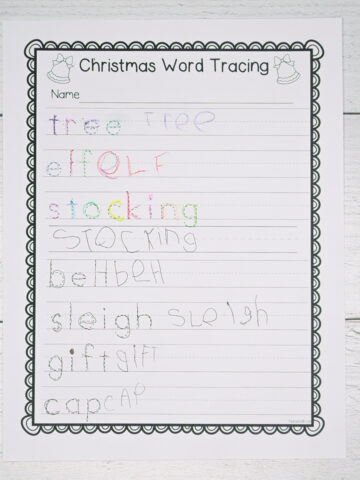 Christmas Word Tracing
Name
tree Tree
elf eLF
stocking
STOCKing
bell bell
sleigh SLeigh
gift gifT
cap CAP